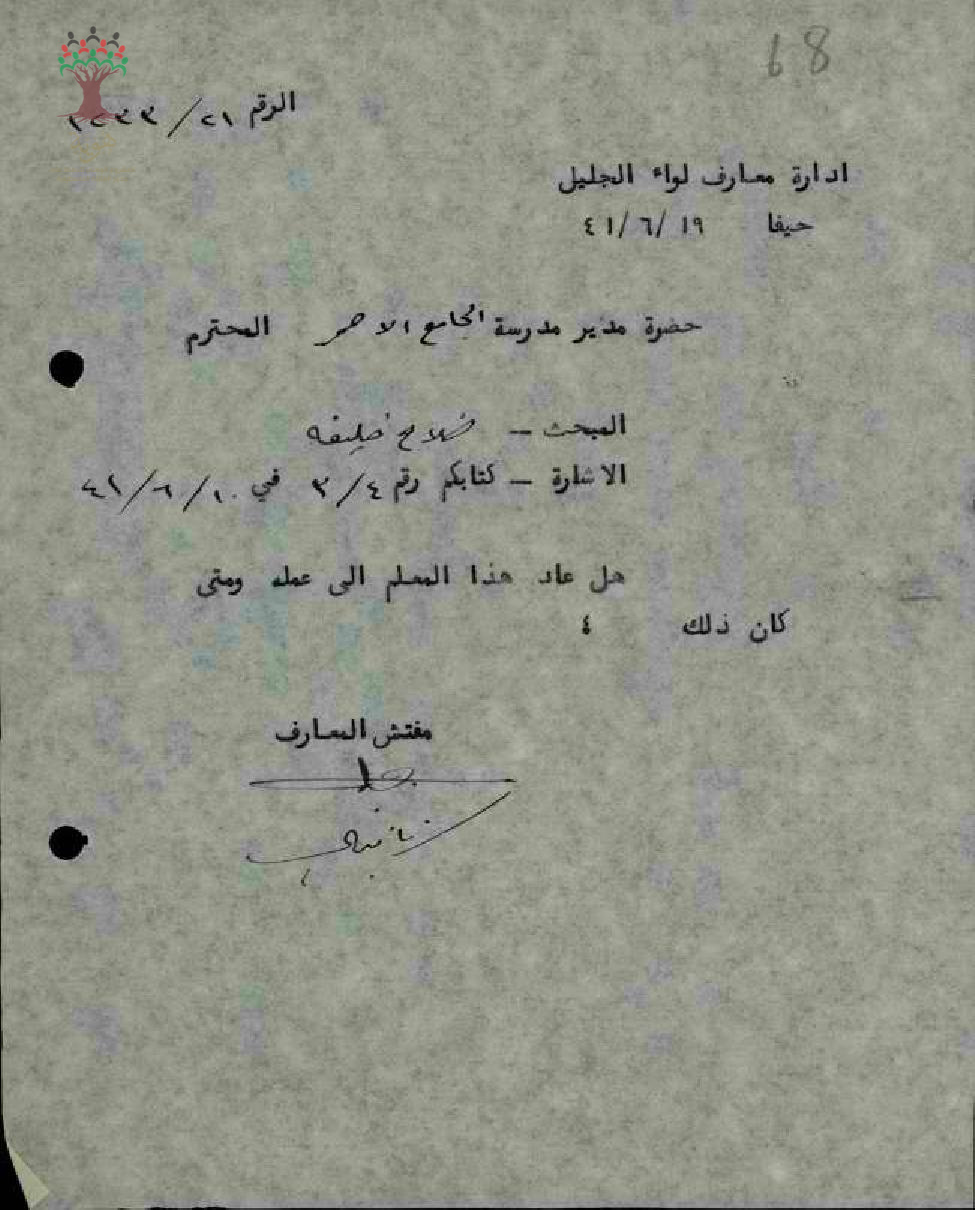 68
الرقم ٢١/
ادارة معارف لواء الجليل
حيفا ١٩/٦/٤١
حضرة مدير مدرسة الجامع الاحمر المحترم
المبحث — صلاح خليفه
الاشارة — كتابكم رقم ٣/٤ في ٤١/٦/١٠
هل عاد هذا المعلم الى عمله ومتى
كان ذلك ؟
مفتش المعارف